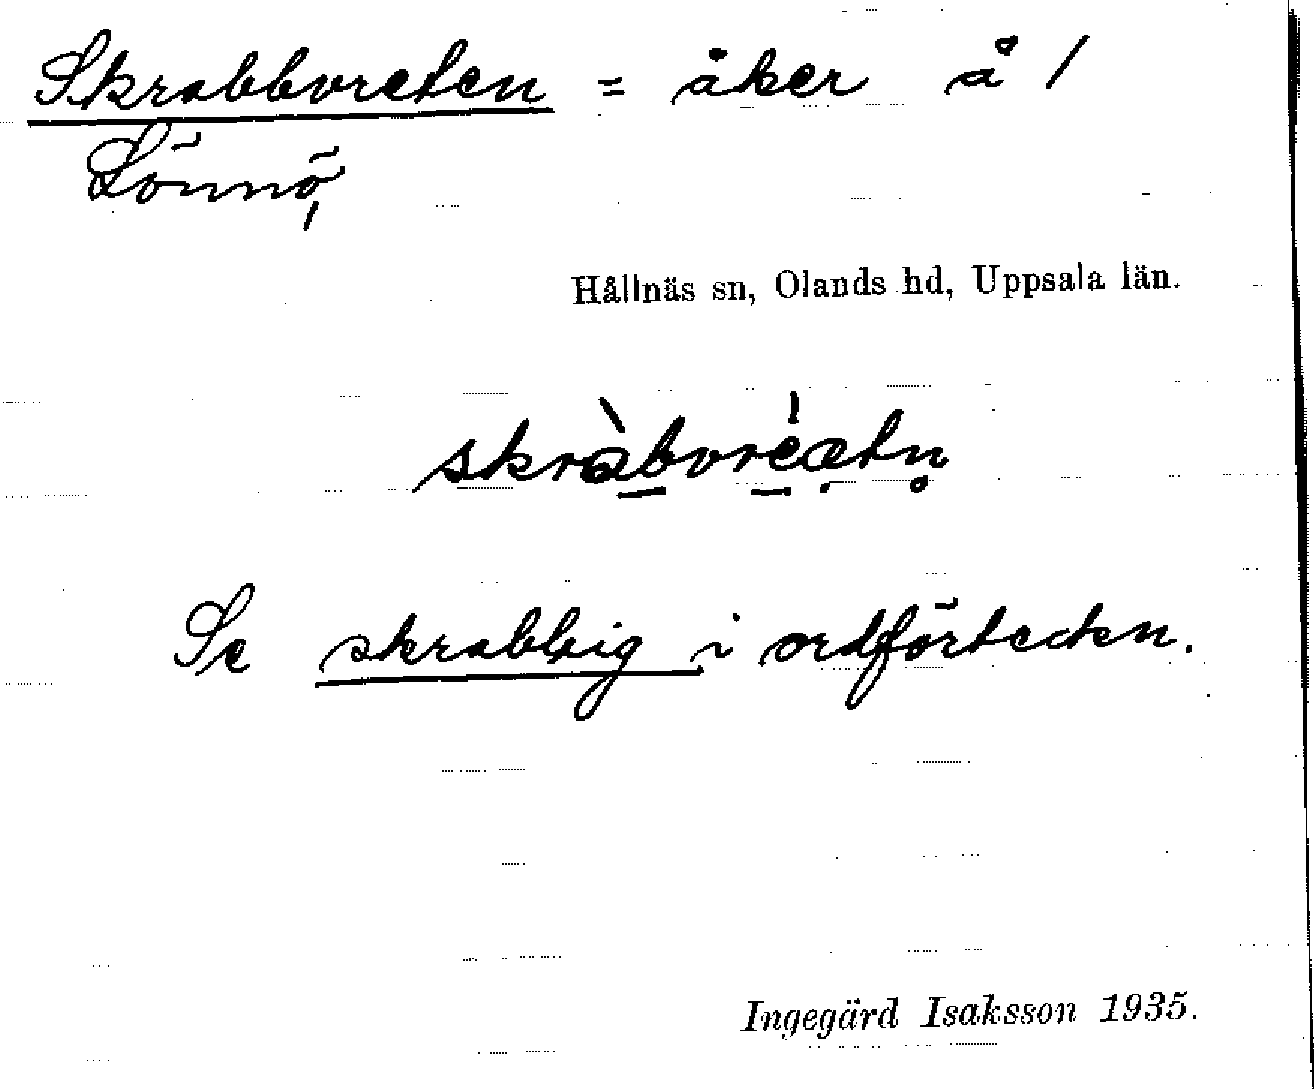 Skrabbvreten = åker å /
Lönnö,
Hållnäs sn, Olands hd, Uppsala län.
skràbvréætn̥
Se skrabbig i ordförteckn.
Ingegärd Isaksson 1935.